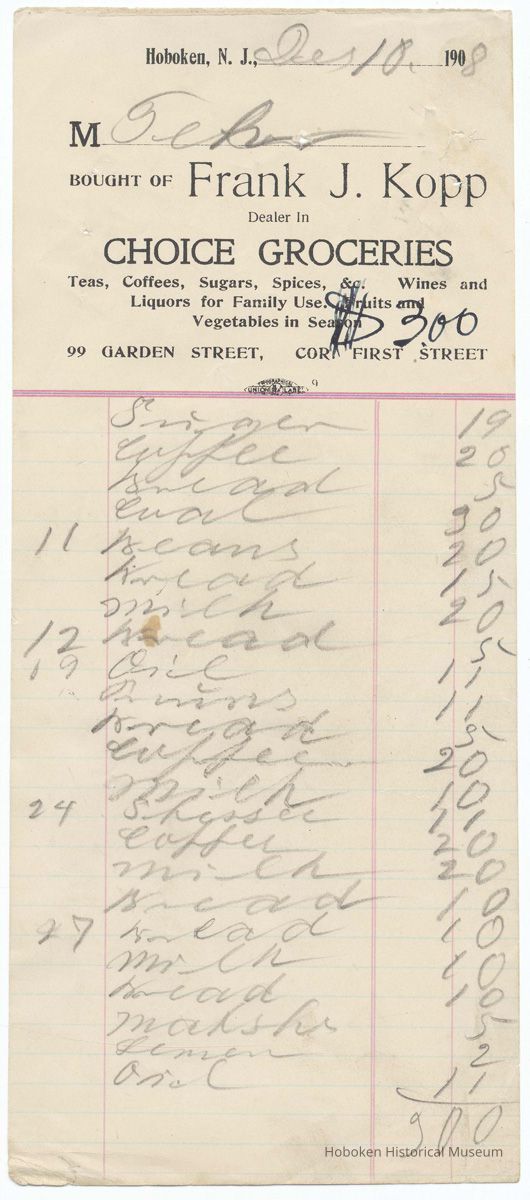 Hoboken, N. J., Dec 10. 1908
M
BOUGHT OF Frank J. Kopp
Dealer In
CHOICE GROCERIES
Teas, Coffees, Sugars, Spices, &c. Wines and
Liquors for Family Use. Fruits and
Vegetables in Season
$3.00
99 GARDEN STREET, COR. FIRST STREET
TYPOGRAPHICAL UNION LABEL 9
Suger 19
Coffee 20
Bread 5
Coal 30
11 Beans 20
Bread 15
Milk 20
12 Bread 5
19 Oil 11
11
Bread 5
Coffee 20
Milk 10
24 11
Coffee 20
Milk 20
Bread 10
27 Bread 10
Milk 10
Bread 10
5
Lemon 2
Oil 11
300
Hoboken Historical Museum